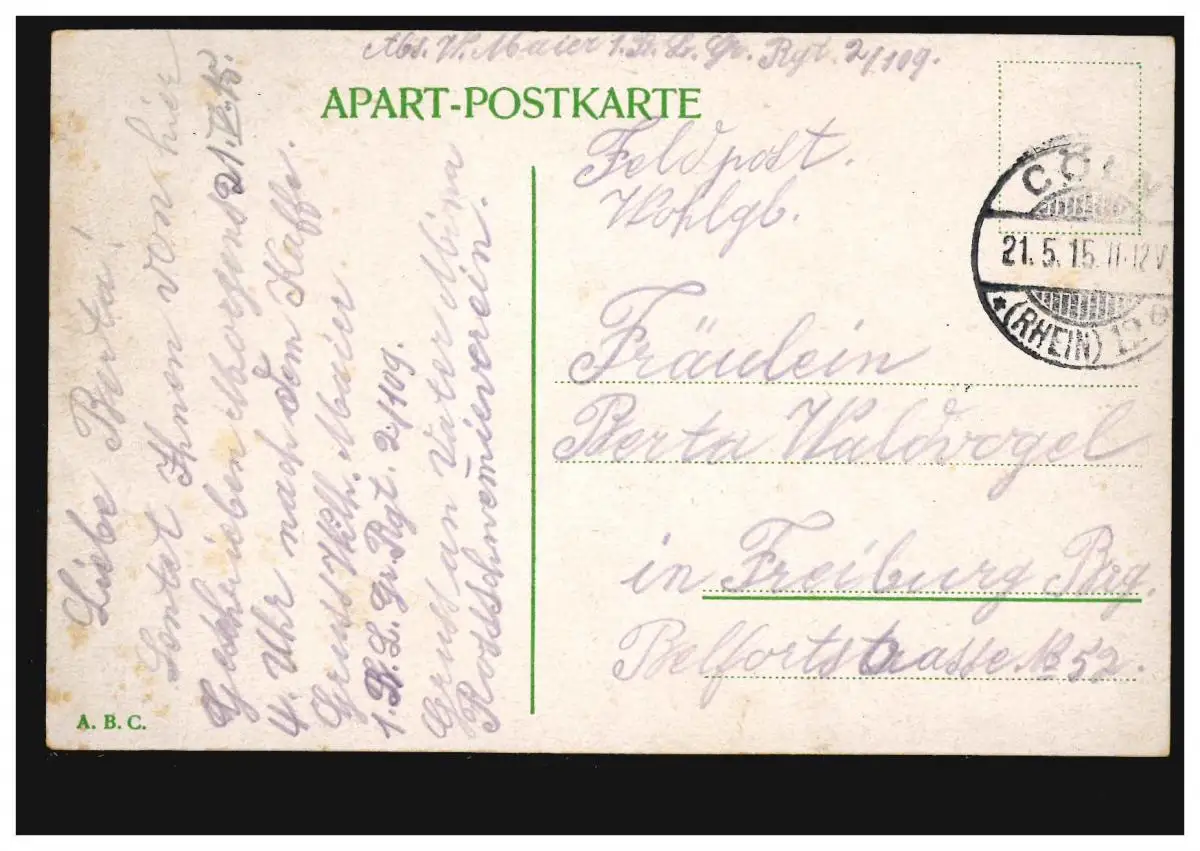 Abs. W. Maier 1. B. L. Gr. Rgt. 2/109.
APART-POSTKARTE
Feldpost.
Wohlgb.
Fräulein
Berta Waldvogel
in Freiburg Brg.
Belfortstrasse № 52.
CÖLN
21.5.15. 11-12V
* (RHEIN)
Liebe Berta!
Sentat Ihnen von hier
Geschrieben Morgens 21.V.15.
4. Uhr nach dem Kaffe.
Gruss Wilh. Maier
1. B. L. Gr. Rgt. 2/109.
Gruss an Vater Mina
A. B. C.